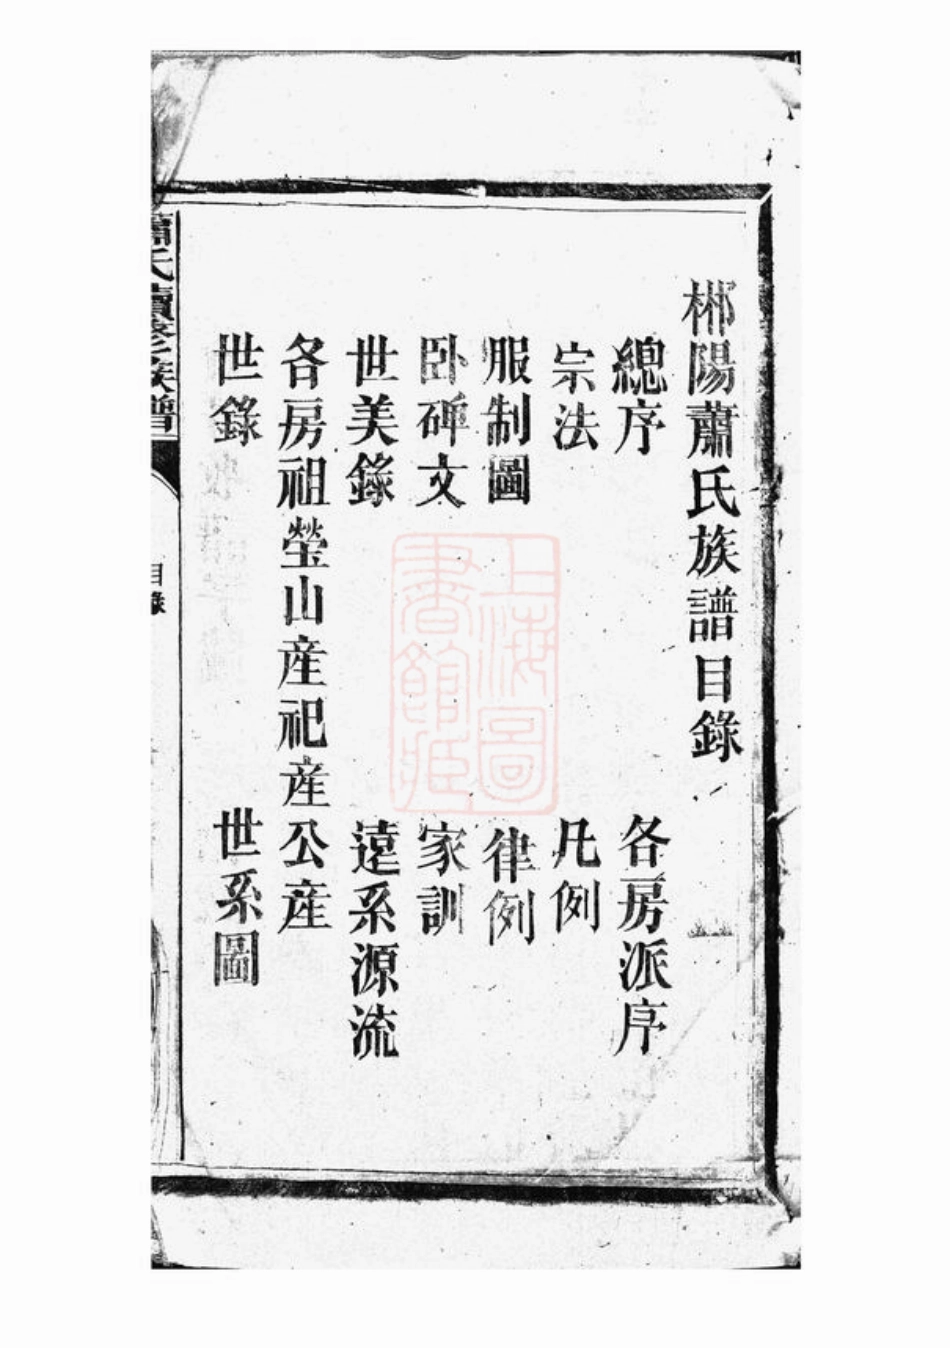 郴陽蕭氏族譜目錄
總序　各房派序
宗法　凡例
服制圖　律例
卧碑文　家訓
世美錄　遠系源流
各房祖塋山産祀産公産
世錄　世系圖
蕭氏續修族譜
目錄
上海圖
書館藏